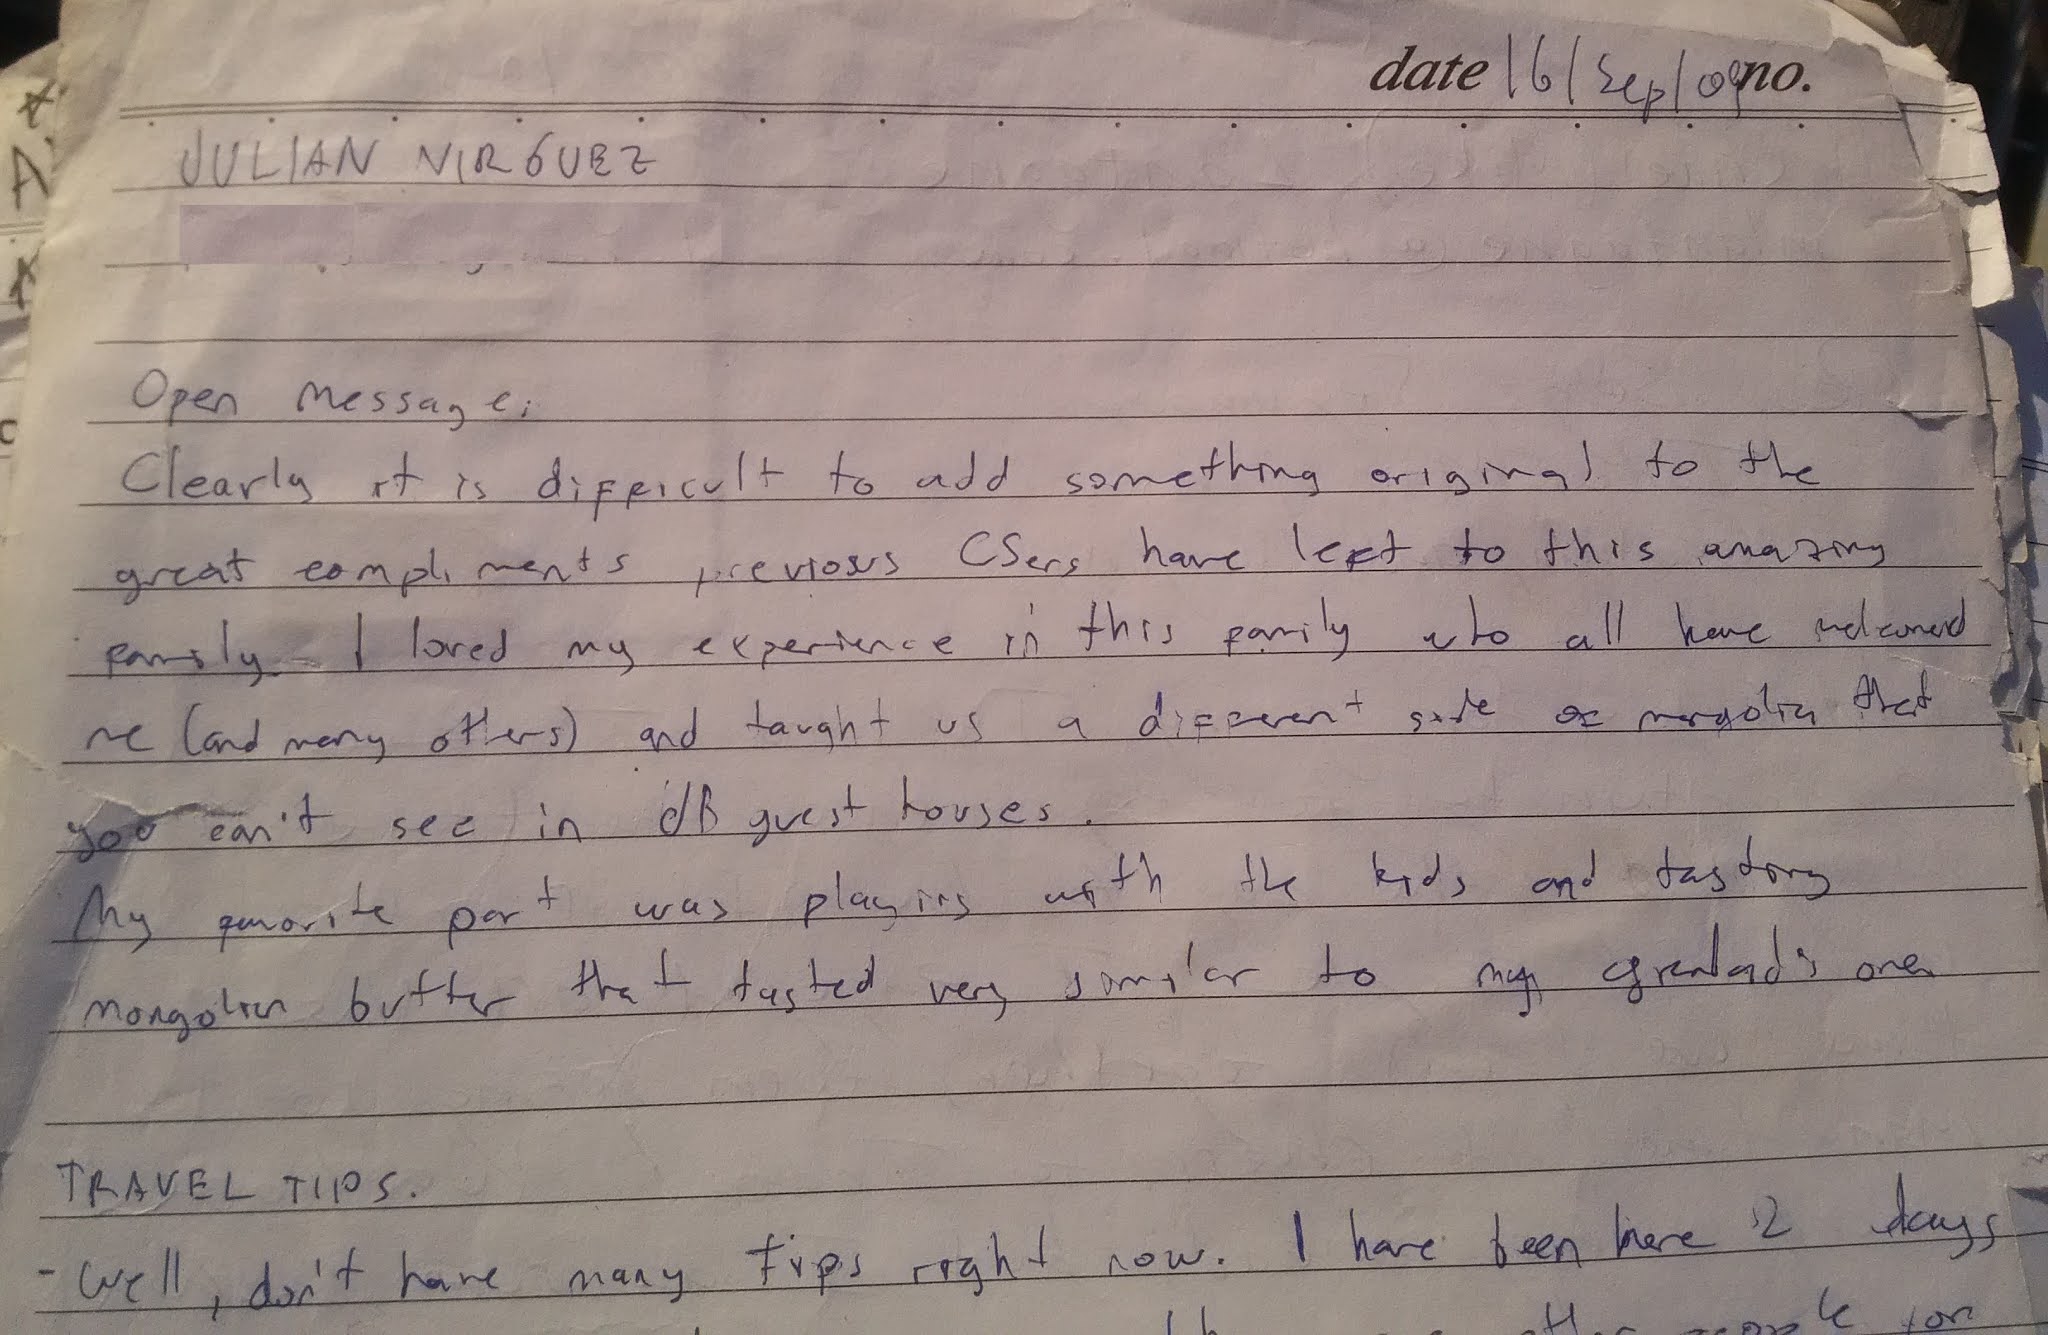 date 16/Sep/09 no.
JULIAN NIRGUEZ
Open Message:
Clearly it is difficult to add something original to the
great compliments previous CSers have left to this amazing
family. I loved my experience in this family who all have welcomed
me (and many others) and taught us a different side of mongolia that
you can't see in UB guest houses.
My favorite part was playing with the kids and tasting
mongolian butter that tasted very similar to my grandad's one.
TRAVEL TIPS.
- Well, don't have many tips right now. I have been here 2 days
other people for